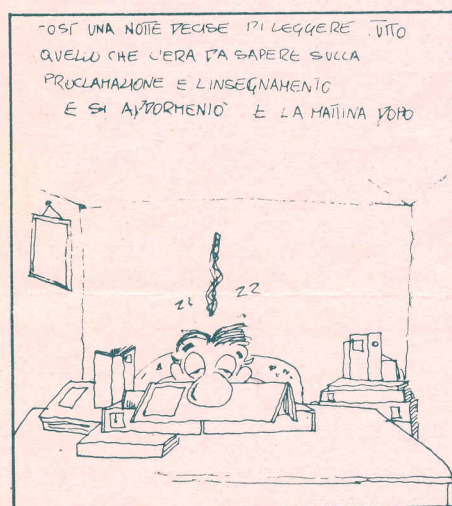 -OSI UNA NOTTE DECISE DI LEGGERE .UTTO
QUELLO CHE C'ERA DA SAPERE SULLA
PROCLAMAZIONE E L'INSEGNAMENTO
E SI ADDORMENTÒ E LA MATTINA DOPO
ZZ ZZ